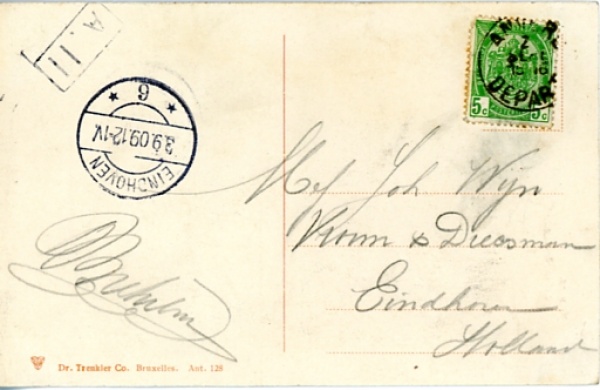 A.11
* 6 *
3.9.09.12-1V.
EINDHOVEN
ANV
DEPART
5c 5c
Mej Joh Wijn
Vroom & Dreesman
Eindhoven
Holland
Wilhelm
Dr. Trenkler Co. Bruxelles. Ant. 128